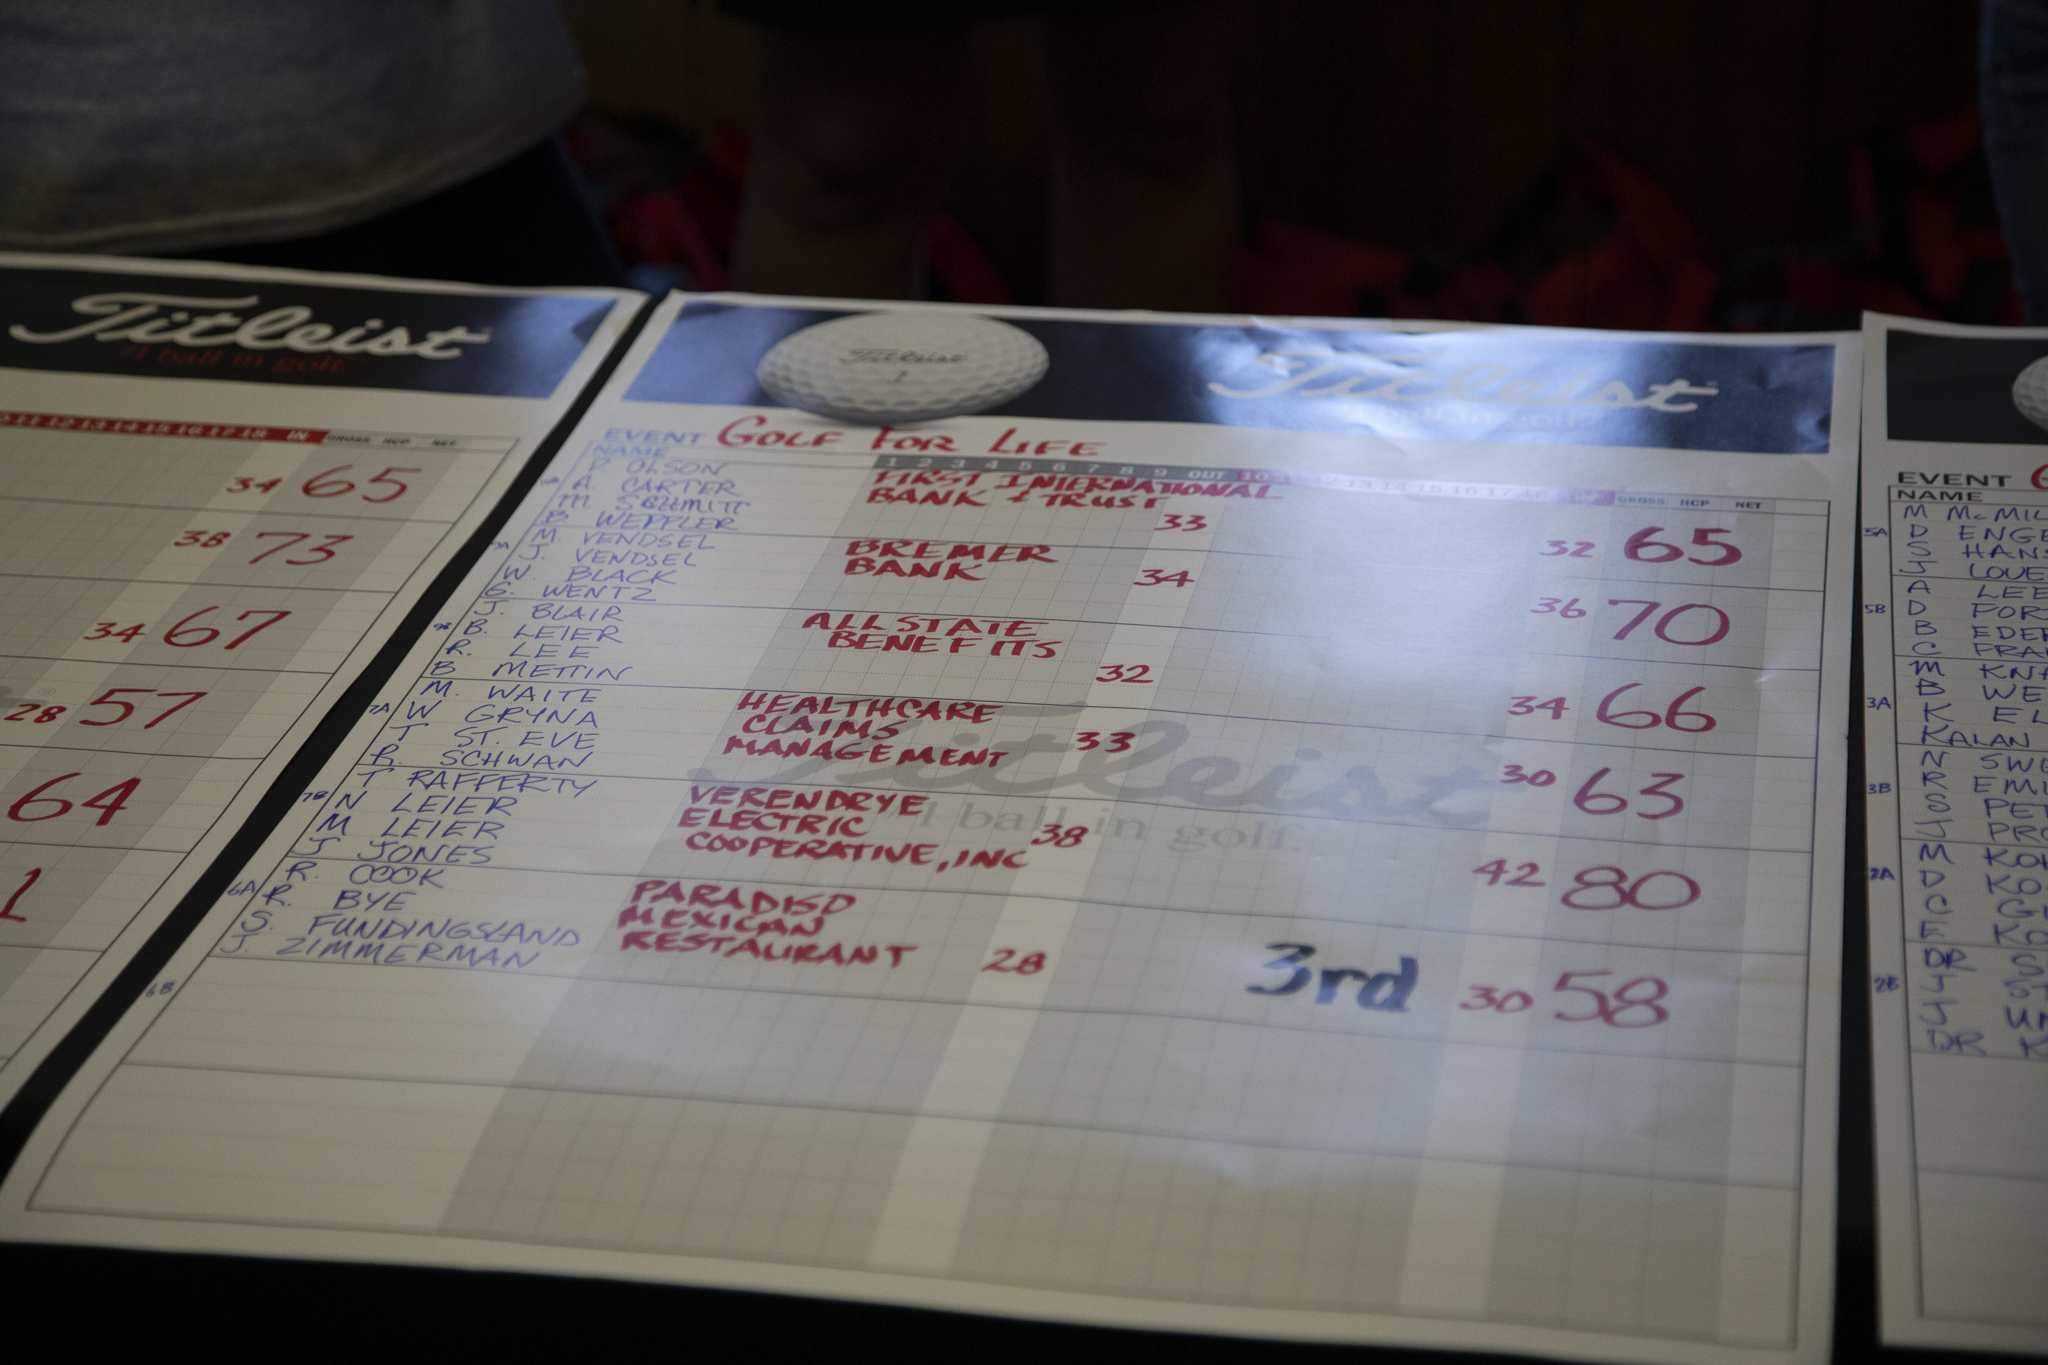 Titleist
"1 ball in golf."
11 12 13 14 15 16 17 18 IN GROSS HCP NET
34 65
38 73
34 67
28 57
64
1
Titleist
2
Titleist
EVENT GOLF FOR LIFE
NAME
1 2 3 4 5 6 7 8 9 OUT 10 12 13 14 15 16 17 18 GROSS HCP NET
P. OLSON
A. CARTER
M. SCHMITT
B. WEPPLER
FIRST INTERNATIONAL
BANK & TRUST
33
32 65
M. VENDSEL
J. VENDSEL
W. BLACK
G. WENTZ
BREMER
BANK
34
36 70
9B
J. BLAIR
B. LEIER
R. LEE
B METTIN
ALLSTATE
BENEFITS
32
34 66
7A
M. WAITE
W GRYNA
J ST. EVE
R. SCHWAN
HEALTHCARE
CLAIMS
MANAGEMENT
33
30 63
7B
T RAFFERTY
N LEIER
M LEIER
J JONES
VERENDRYE
ELECTRIC
COOPERATIVE, INC
38
42 80
6A
R. COOK
R. BYE
S. FUNDINGSLAND
J. ZIMMERMAN
PARADISO
MEXICAN
RESTAURANT
28
3rd
30 58
6B
Titleist
1 ball in golf.
EVENT G
NAME
5A
M McMIL
D ENGE
S HANS
J LOVE
5B
A LEE
D FOR
B EDER
C FRA
3A
M KNA
B WE
K EL
KALAN
3B
N SWE
R EMI
S PET
J PRO
2A
M KOH
D KO
C GU
E KO
2B
DR S
J ST
J UN
DR K